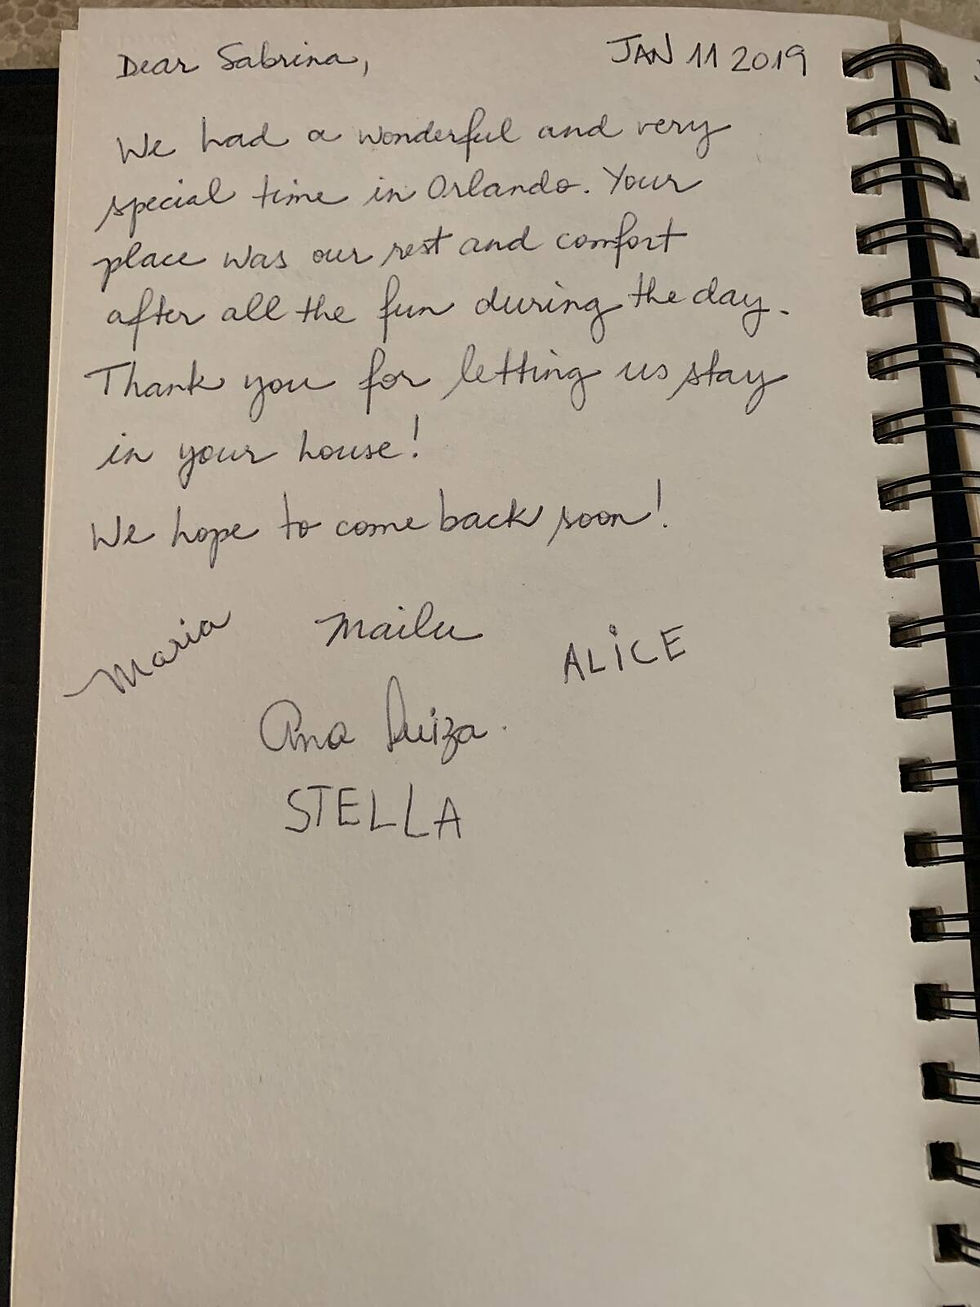 Dear Sabrina, JAN 11 2019
We had a wonderful and very
special time in Orlando. Your
place was our rest and comfort
after all the fun during the day.
Thank you for letting us stay
in your house!
We hope to come back soon!
Maria Mailu ALiCE
Ana Luiza.
STELLA